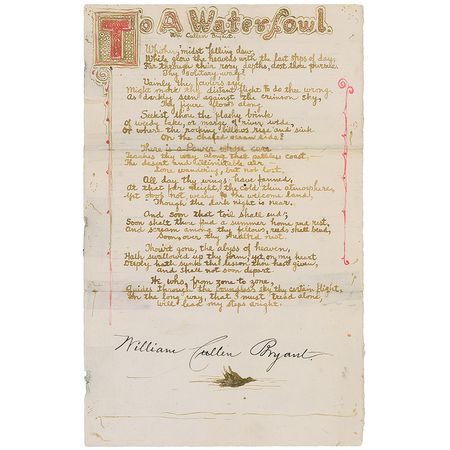 To A Waterfowl.
Wm Cullen Bryant.
Whither, 'midst falling dew,
While glow the heavens with the last steps of day,
Far through their rosy depths, dost thou pursue
Thy solitary way?
Vainly the fowlers eye
Might mark thy distant flight to do the wrong,
As darkly seen against the crimson sky,
Thy figure floats along.
Seek'st thou the plashy brink
Of weedy lake, or marge of river wide,
Or where the rocking billows rise and sink
On the chafed ocean side?
There is a Power whose care
Teaches thy way along that pathless coast,—
The desert and illimitable air—
Lone wandering, but not lost.
All day thy wings have fanned,
At that far height, the cold thin atmosphere,
Yet stoop not weary to the welcome land,
Though the dark night is near.
And soon that toil shall end;
Soon shalt thou find a summer home and rest,
And scream among thy fellows, reeds shall bend,
Soon, over thy sheltered nest
Thou'rt gone, the abyss of heaven,
Hath swallowed up thy form, yet on my heart
Deeply hath sunk the lesson thou hast given,
And shall not soon depart
He who, from zone to zone,
Guides through the boundless sky thy certain flight,
In the long way, that I must tread alone,
Will lead my steps aright.
William Cullen Bryant.